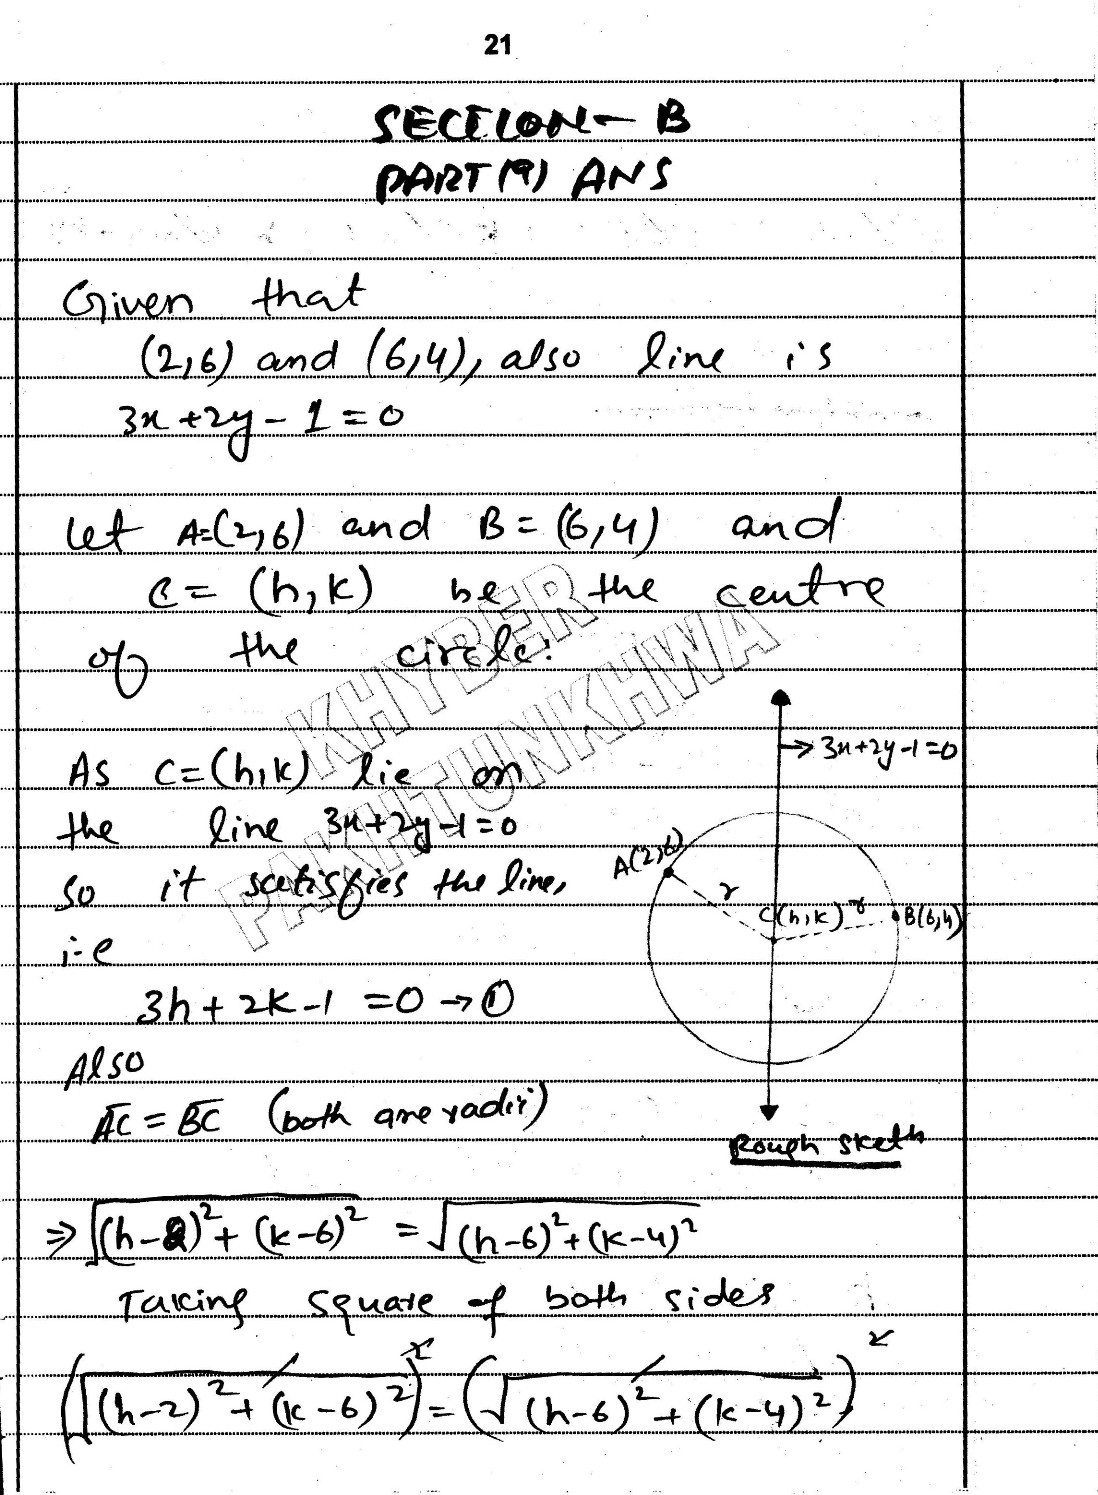 21
SECTION - B
PART (9) ANS
Given that
(2,6) and (6,4), also line is
3x+2y-1=0
Let A=(2,6) and B=(6,4) and
C=(h,k) be the centre
of the circle.
KHYBER
PAKHTUNKHWA
As C=(h,k) lie on
the line 3x+2y-1=0
so it satisfies the line,
i-e
3h+2k-1=0→①
Also
A̅C̅=B̅C̅ (both are radii)
→3x+2y-1=0
A(2,6)
r
C(h,k) r
B(6,4)
Rough sketh
⇒ √((h-2)²+(k-6)²) = √((h-6)²+(k-4)²)
Taking square of both sides
(√((h-2)²+(k-6)²))² = (√((h-6)²+(k-4)²))²